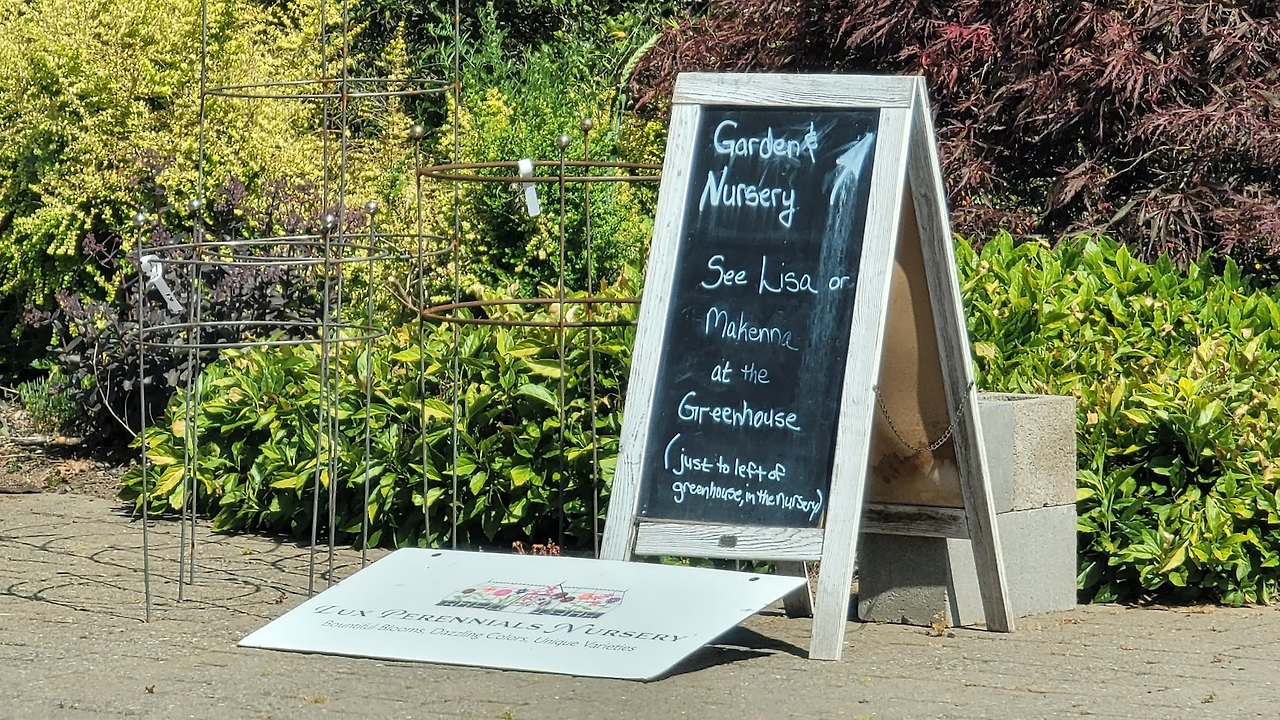 Garden &
Nursery
See Lisa or
Makenna
at the
Greenhouse
(just to left of
greenhouse, in the nursery)
Lux Perennials Nursery
Bountiful Blooms, Dazzling Colors, Unique Varieties